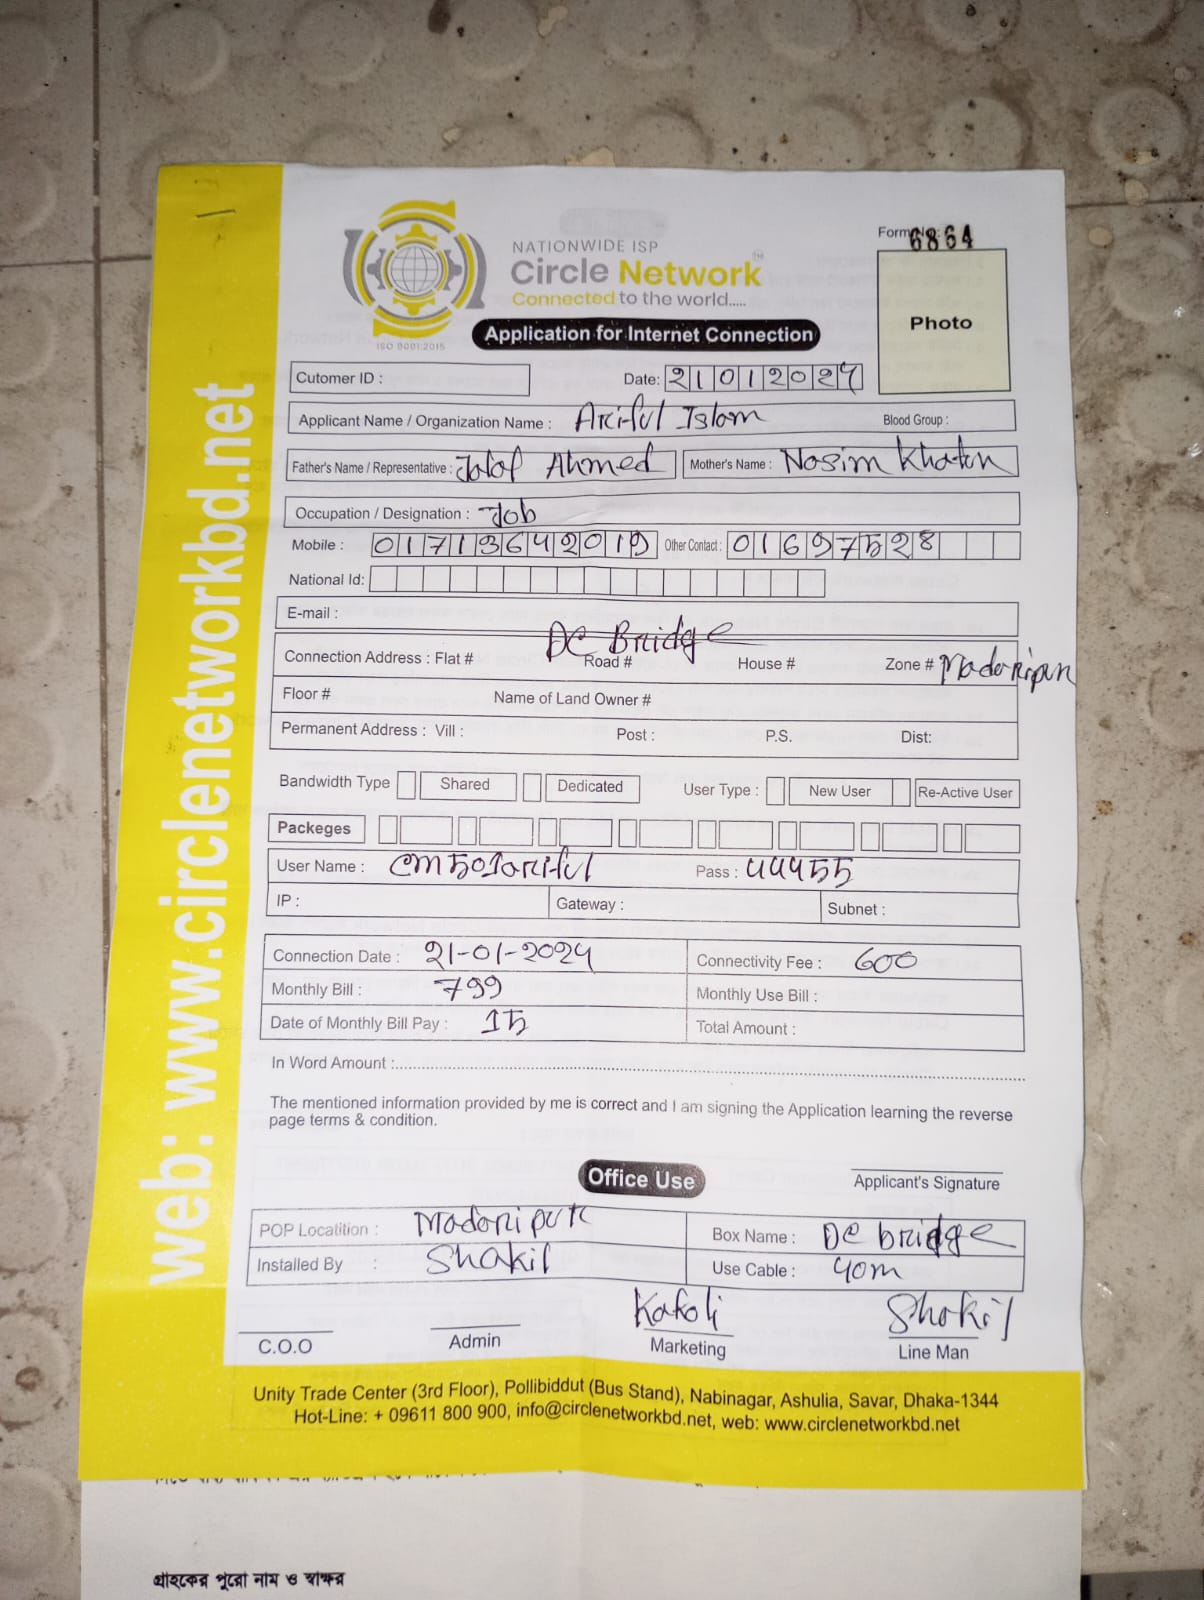 web: www.circlenetworkbd.net
Form No: 6864
NATIONWIDE ISP
Circle Network™
Connected to the world.....
ISO 9001:2015
Application for Internet Connection
Photo
Cutomer ID :
Date: 21012024
Applicant Name / Organization Name : Ariful Islam Blood Group :
Father's Name / Representative : Jalal Ahmed Mother's Name : Nasim Khatun
Occupation / Designation : Job
Mobile : 01713642019 Other Contact : 01697528
National Id:
E-mail :
DC Bridge
Connection Address : Flat # Road # House # Zone # Madaripur
Floor # Name of Land Owner #
Permanent Address : Vill : Post : P.S. Dist:
Bandwidth Type Shared Dedicated User Type : New User Re-Active User
Packeges
User Name : cm501ariful Pass : 44455
IP : Gateway : Subnet :
Connection Date : 21-01-2024 Connectivity Fee : 600
Monthly Bill : 799 Monthly Use Bill :
Date of Monthly Bill Pay : 15 Total Amount :
In Word Amount :
The mentioned information provided by me is correct and I am signing the Application learning the reverse
page terms & condition.
Office Use
Applicant's Signature
POP Locatition : Madaripur Box Name : DC bridge
Installed By : Shakil Use Cable : 40m
Kakoli Shakil
C.O.O Admin Marketing Line Man
Unity Trade Center (3rd Floor), Pollibiddut (Bus Stand), Nabinagar, Ashulia, Savar, Dhaka-1344
Hot-Line: + 09611 800 900, info@circlenetworkbd.net, web: www.circlenetworkbd.net
গ্রাহকের পুরো নাম ও স্বাক্ষর